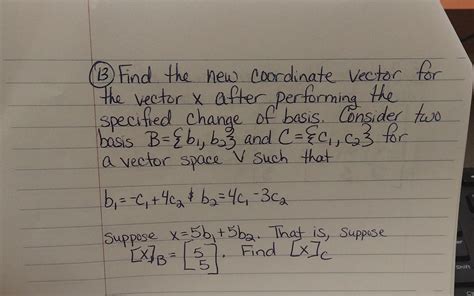 (13) Find the new coordinate vector for
the vector x after performing the
specified change of basis. Consider two
basis B={b₁, b₂} and C={c₁, c₂} for
a vector space V such that
b₁=-c₁+4c₂ & b₂=4c₁-3c₂
Suppose x=5b₁+5b₂. That is, suppose
[x]_B=[5 5]. Find [x]_C